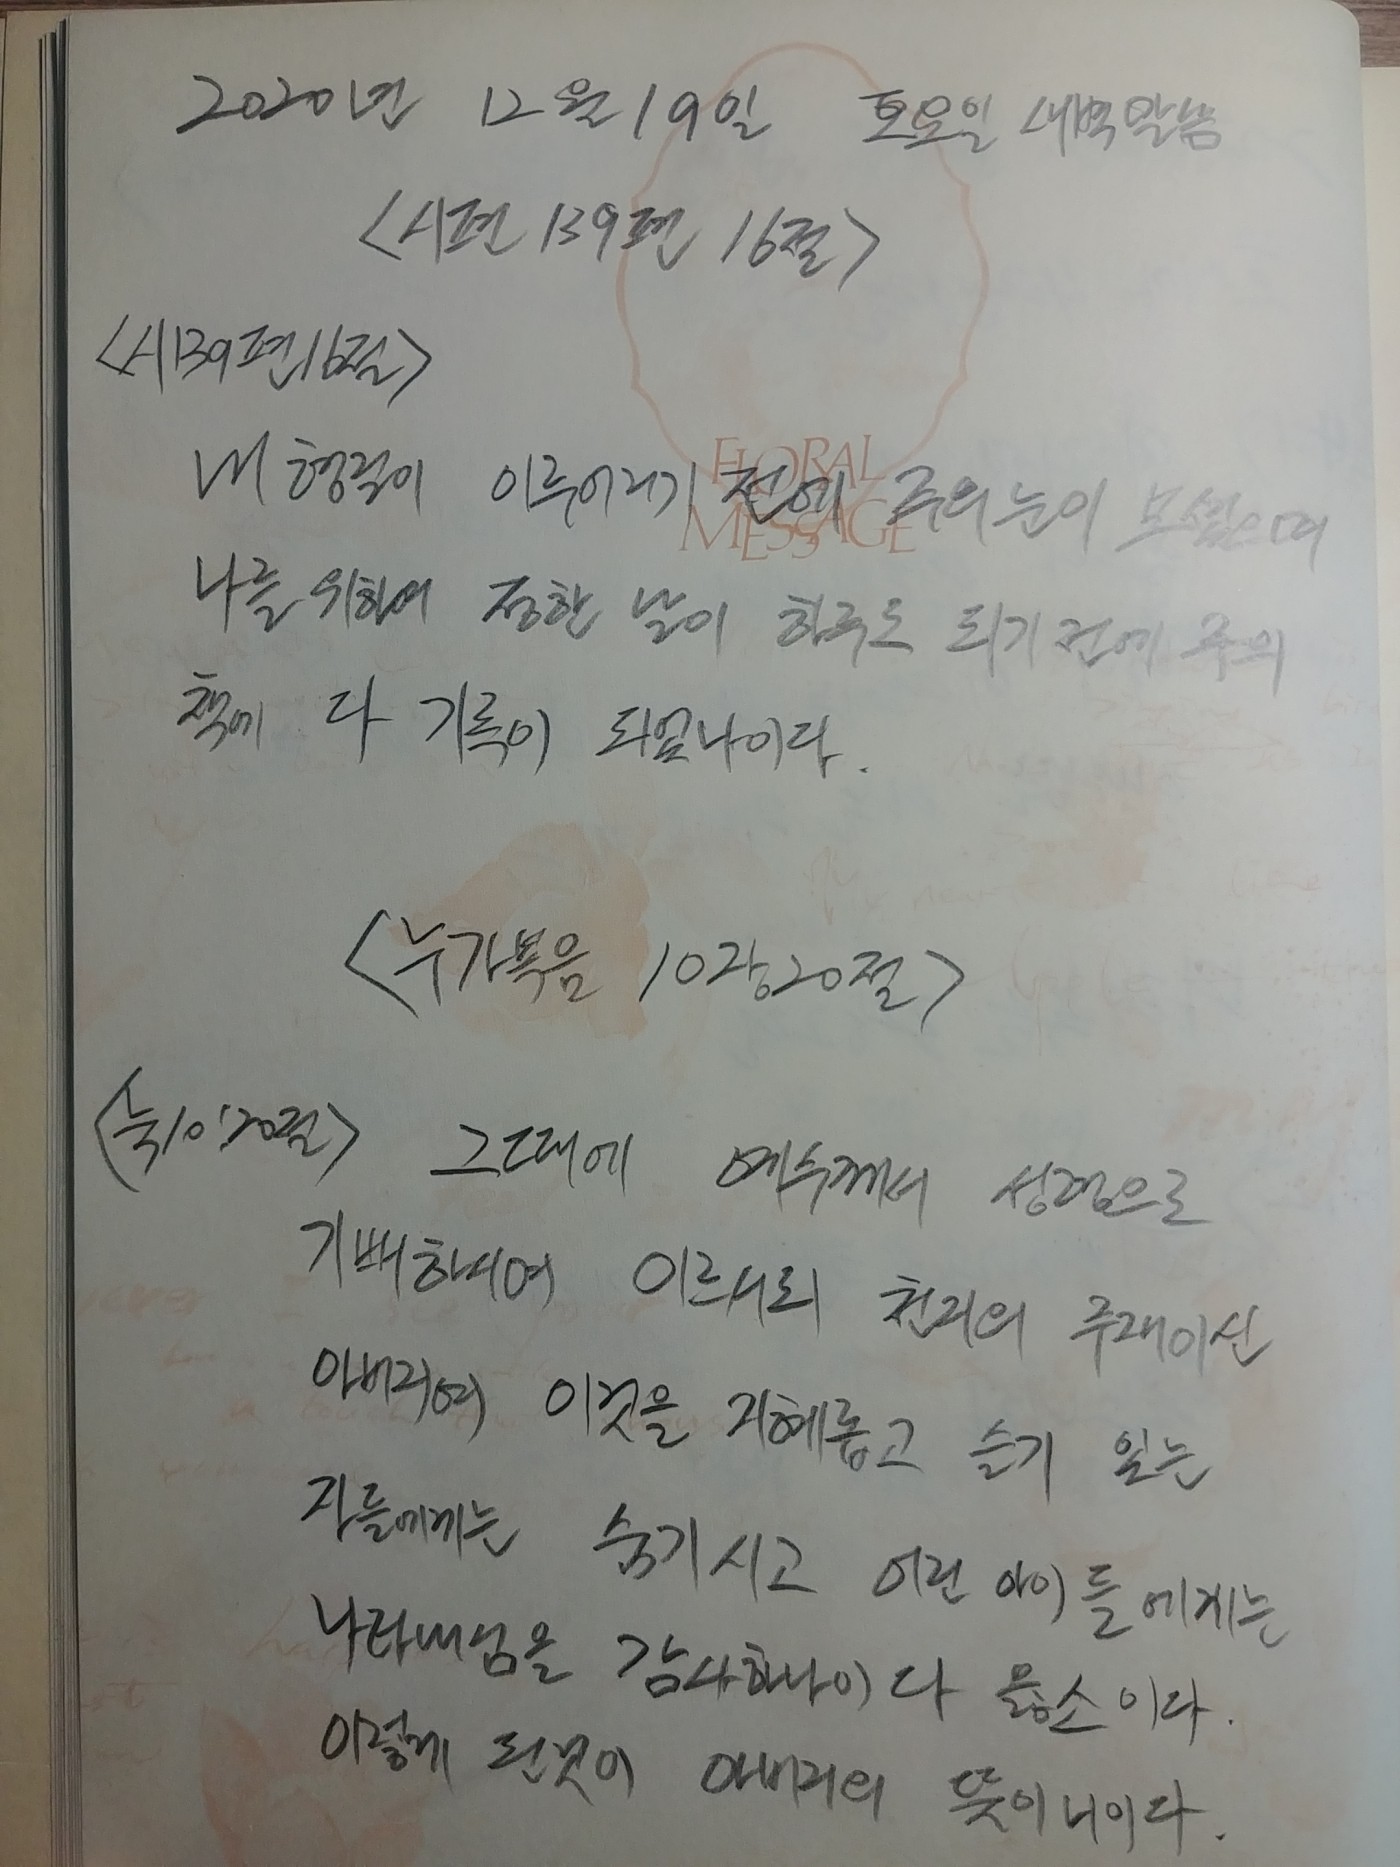 2020년 12월 19일 토요일 새벽말씀
<시편 139편 16절>
<시139편16절>
내 형질이 이루어지기 전에 주의 눈이 보셨으며
나를 위하여 정한 날이 하루도 되기 전에 주의
책에 다 기록이 되었나이다.
FLORAL
MESSAGE
<누가복음 10장20절>
<눅10:20절> 그때에 예수께서 성령으로
기뻐하시며 이르시되 천지의 주재이신
아버지여 이것을 지혜롭고 슬기 있는
자들에게는 숨기시고 어린 아이들에게는
나타내심을 감사하나이다 옳소이다.
이렇게 된것이 아버지의 뜻이니이다.